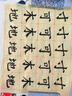 寸寸寸寸寸
可可可可可
木木木木木
地地地地地